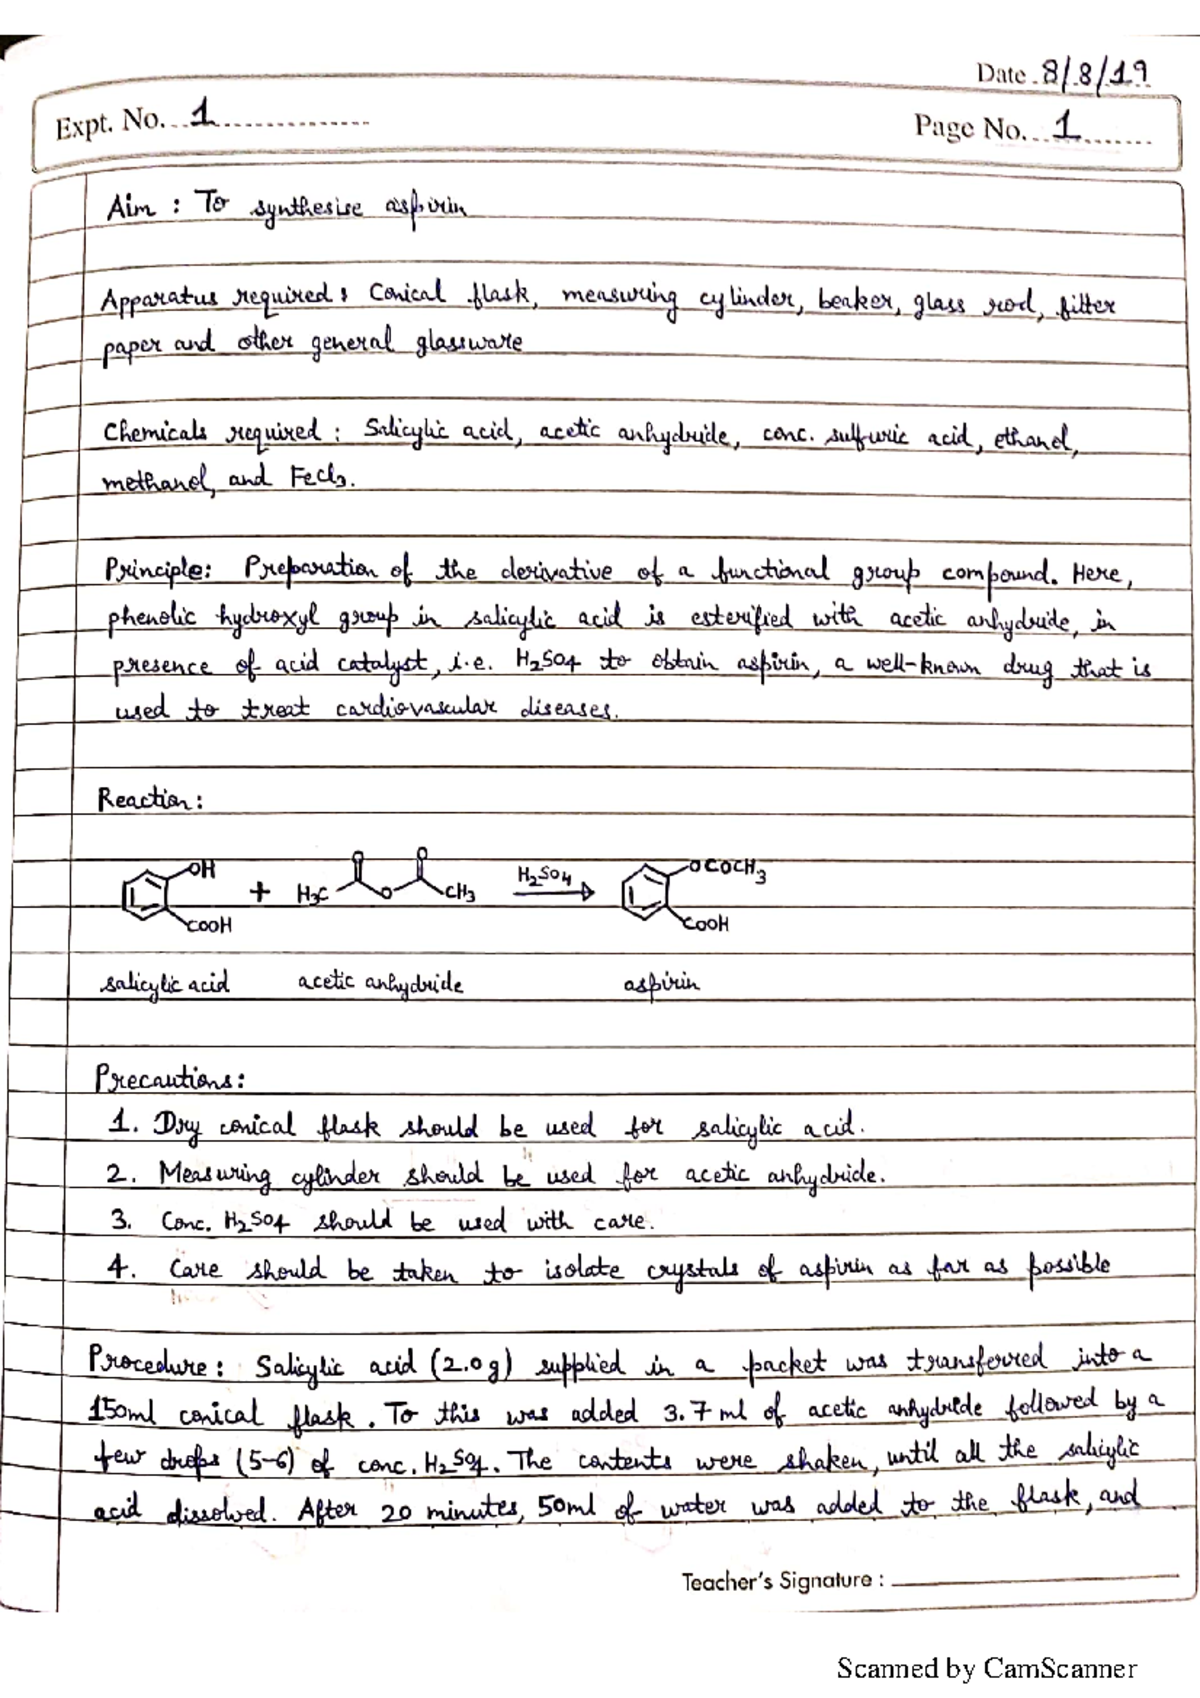 Date 8/8/19
Expt. No. 1
Page No. 1
Aim : To synthesise aspirin
Apparatus required : Conical flask, measuring cylinder, beaker, glass rod, filter
paper and other general glassware
Chemicals required : Salicylic acid, acetic anhydride, conc. sulfuric acid, ethanol,
methanol, and FeCl3.
Principle: Preparation of the derivative of a functional group compound. Here,
phenolic hydroxyl group in salicylic acid is esterified with acetic anhydride, in
presence of acid catalyst, i.e. H2SO4 to obtain aspirin, a well-known drug that is
used to treat cardiovascular diseases.
Reaction:
OH COOH + H3C O O O CH3 H2SO4 OCOCH3 COOH
salicylic acid acetic anhydride aspirin
Precautions:
1. Dry conical flask should be used for salicylic acid.
2. Measuring cylinder should be used for acetic anhydride.
3. Conc. H2SO4 should be used with care.
4. Care should be taken to isolate crystals of aspirin as far as possible
Procedure: Salicylic acid (2.0g) supplied in a packet was transferred into a
150ml conical flask. To this was added 3.7 ml of acetic anhydride followed by a
few drops (5-6) of conc. H2SO4. The contents were shaken, until all the salicylic
acid dissolved. After 20 minutes, 50ml of water was added to the flask, and
Teacher's Signature :
Scanned by CamScanner